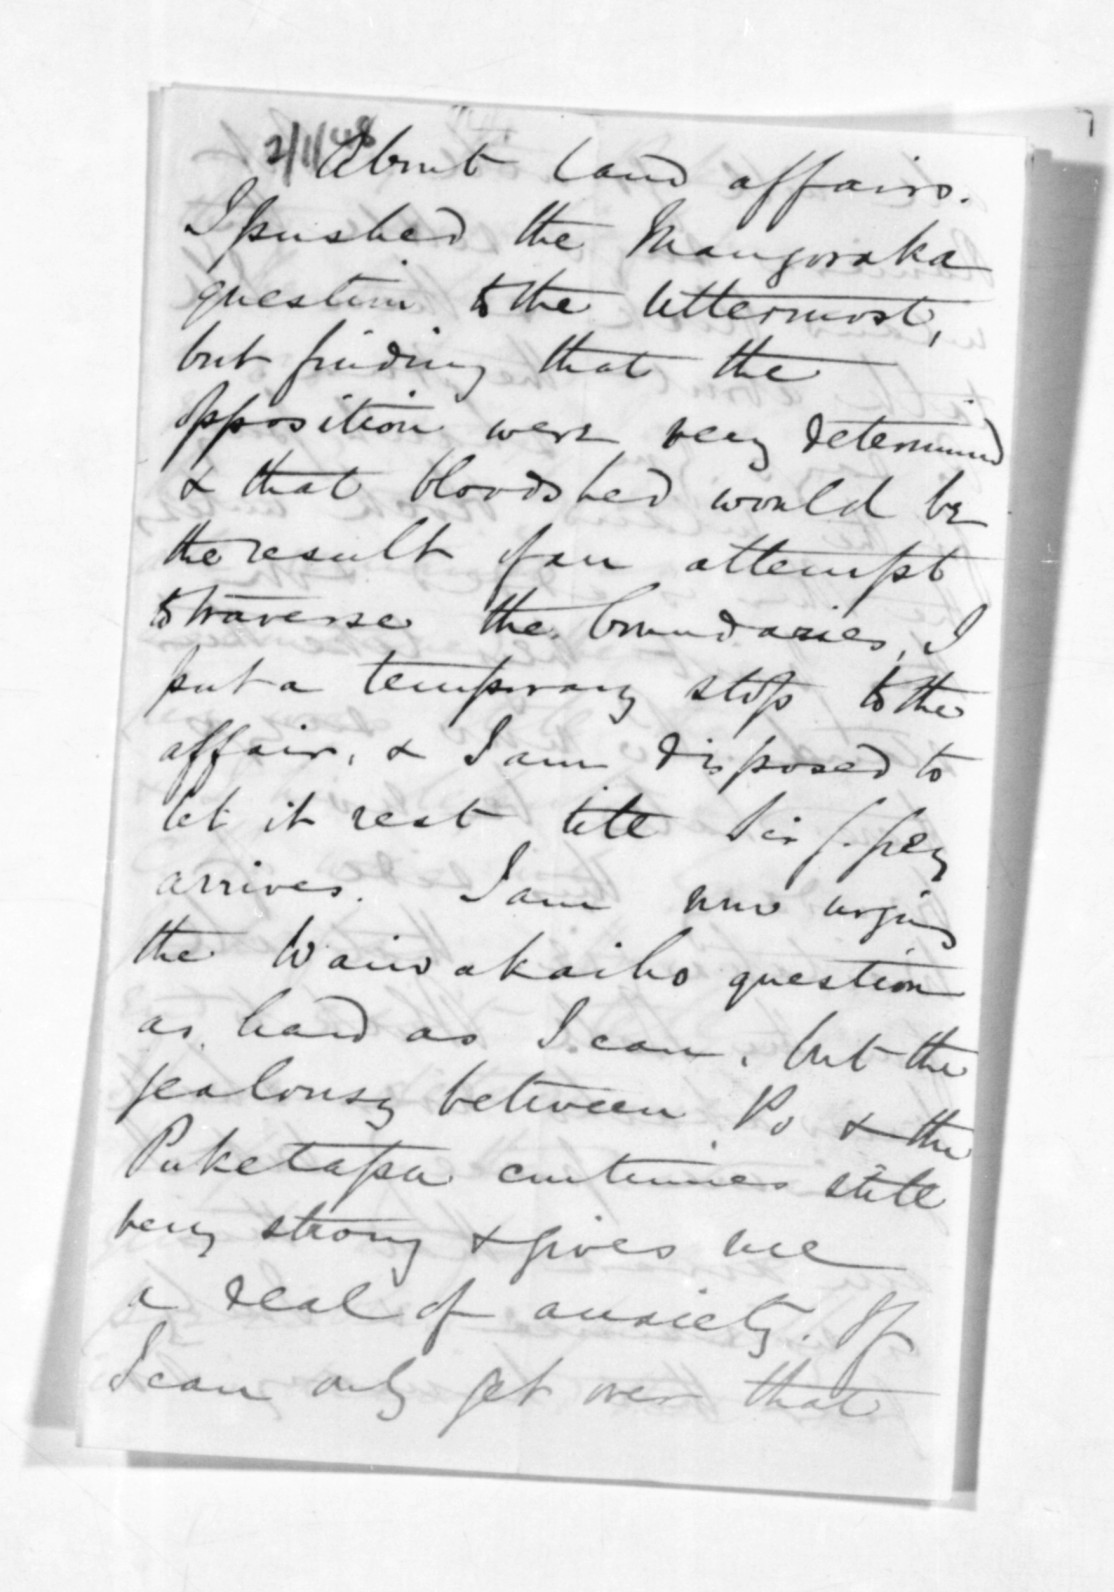 2/11/48
About land affairs.
I pushed the Mangoraka
question to the uttermost,
but finding that the
opposition were very determined
& that bloodshed would be
the result of an attempt
to traverse the boundaries, I
put a temporary stop to the
affair, & I am disposed to
let it rest till Sir G. Grey
arrives. I am now urging
the Waiwakaiho question
as hard as I can, but the
jealousy between Po & the
Puketapu continues still
very strong & gives me
a deal of anxiety. If
I can only get over that